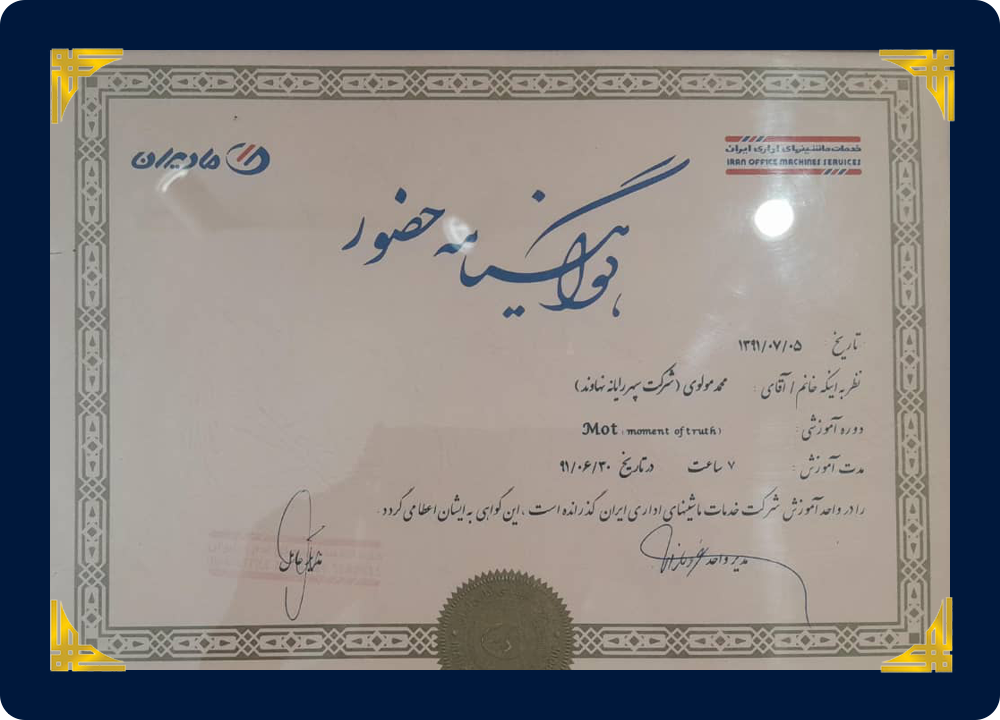 خدمات ماشینهای اداری ایران
IRAN OFFICE MACHINES SERVICES
مادیران
گواهینامه حضور
تاریخ : ۱۳۹۱/۰۷/۰۵
نظر به اینکه خانم / آقای : محمد مولوی (شرکت سپهر رایانه نهاوند)
دوره آموزشی : Mot (moment of truth)
مدت آموزش : ۷ ساعت در تاریخ ۹۱/۰۶/۳۰
را در واحد آموزش شرکت خدمات ماشینهای اداری ایران گذرانده است ، این گواهی به ایشان اعطا می گردد.
مدیر واحد
مدیر عامل